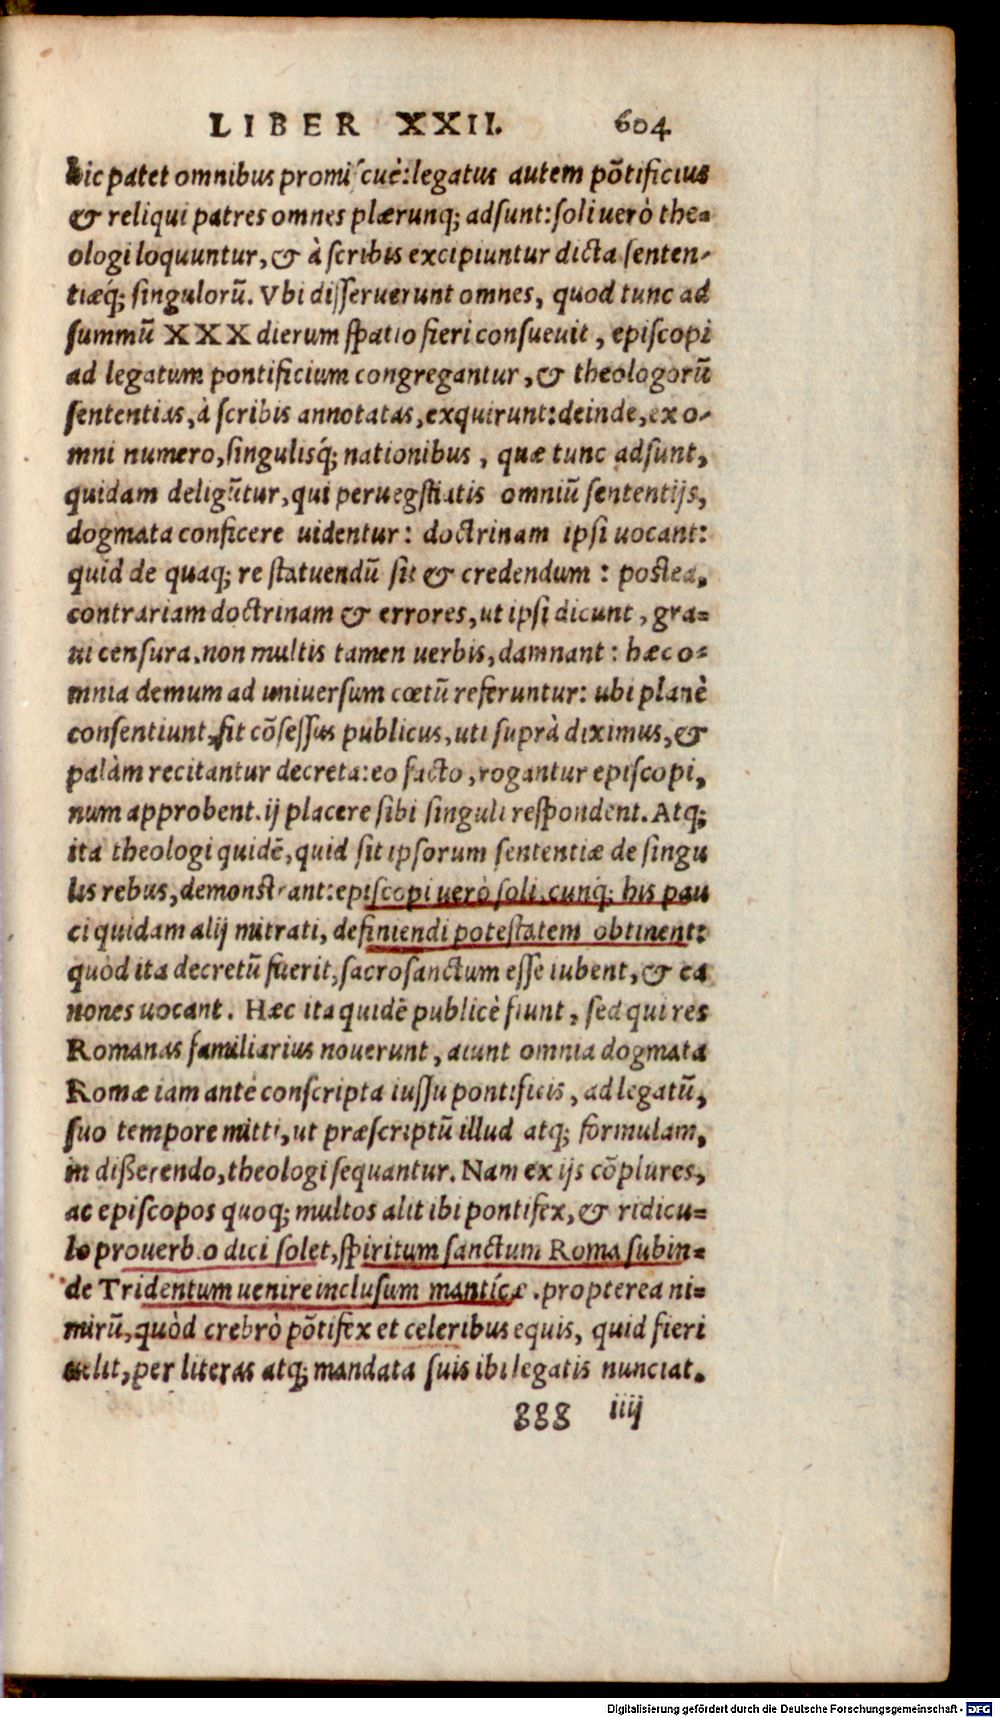 LIBER XXII. 604
hic patet omnibus promiscuè: legatus autem põtificius
& reliqui patres omnes plærunq; adsunt: soli uerò the=
ologi loquuntur, & à scribis excipiuntur dicta senten-
tiæq́; singulorũ. Vbi disseruerunt omnes, quod tunc ad
summũ XXX dierum spatio fieri consueuit, episcopi
ad legatum pontificium congregantur, & theologorũ
sententias, à scribis annotatas, exquirunt: deinde, ex o-
mni numero, singulisq́; nationibus, quæ tunc adsunt,
quidam deligũtur, qui peruegstiatis omniũ sententijs,
dogmata conficere uidentur: doctrinam ipsi uocant:
quid de quaq; re statuendũ sit & credendum: postea,
contrariam doctrinam & errores, ut ipsi dicunt, gra=
ui censura, non multis tamen uerbis, damnant: hæc o=
mnia demum ad uniuersum cœtũ referuntur: ubi planè
consentiunt, fit cõsessus publicus, uti suprà diximus, &
palàm recitantur decreta: eo facto, rogantur episcopi,
num approbent. ij placere sibi singuli respondent. Atq;
ita theologi quidẽ, quid sit ipsorum sententiæ de singu
lis rebus, demonstrant: episcopi uerò soli, cunq́; his pau
ci quidam alij mitrati, definiendi potestatem obtinent:
quòd ita decretũ fuerit, sacrosanctum esse iubent, & ca
nones uocant. Hæc ita quidẽ publicè fiunt, sed qui res
Romanas familiarius nouerunt, aiunt omnia dogmata
Romæ iam antè conscripta iussu pontificis, ad legatũ,
suo tempore mitti, ut præscriptũ illud atq; formulam,
in disserendo, theologi sequantur. Nam ex ijs cõplures,
ac episcopos quoq; multos alit ibi pontifex, & ridicu=
lo prouerbio dici solet, spiritum sanctum Roma subin=
de Tridentum uenire inclusum manticæ. propterea ni=
mirũ, quòd crebrò põtifex et celeribus equis, quid fieri
uelit, per literas atq; mandata suis ibi legatis nunciat.
ggg iiij
Digitalisierung gefördert durch die Deutsche Forschungsgemeinschaft - DFG